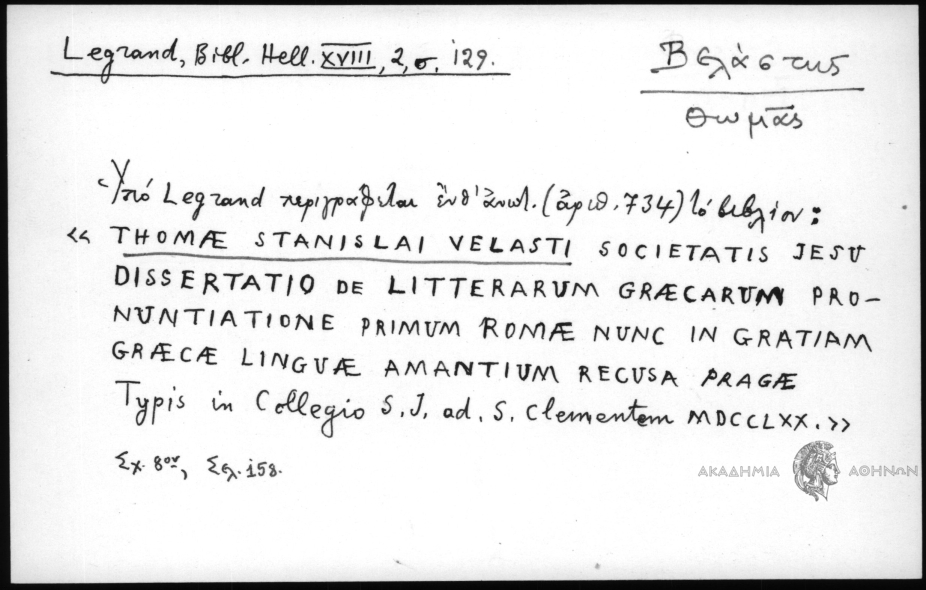 Legrand, Bibl. Hell. XVIII, 2, σ. 129.
Βελάστης
Θωμᾶς
Ὑπό Legrand περιγράφεται ἔνθ' ἀνωτ. (ἀριθ. 734) τό βιβλίον:
«THOMÆ STANISLAI VELASTI SOCIETATIS JESU
DISSERTATIO DE LITTERARUM GRÆCARUM PRO-
NUNTIATIONE PRIMUM ROMÆ NUNC IN GRATIAM
GRÆCÆ LINGUÆ AMANTIUM RECUSA PRAGÆ
Typis in Collegio S. J. ad. S. Clementem MDCCLXX.»
Σχ. 8ον, Σελ. 158.
ΑΚΑΔΗΜΙΑ ΑΘΗΝΩΝ